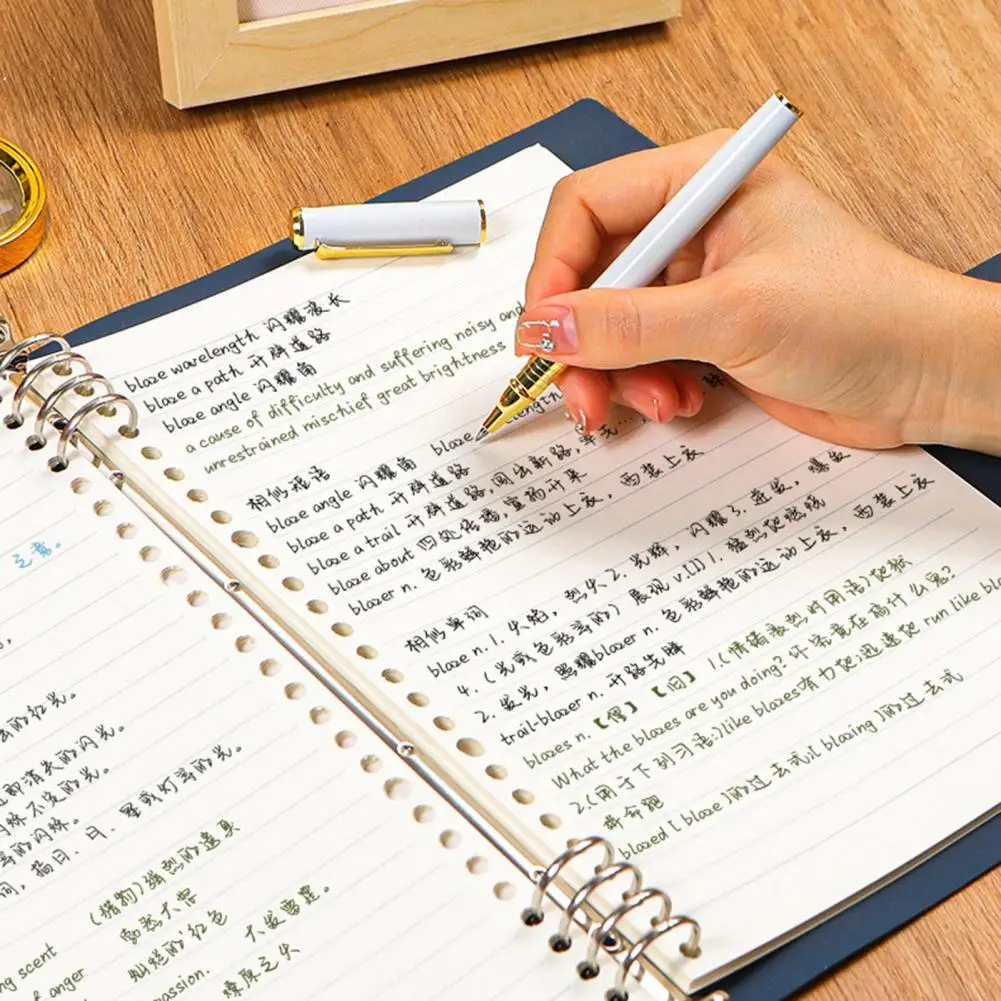 之意。
的红光。
消失的闪光。
不定的光。
的闪烁。
词，指日、月、星或灯等的光。
(猎物)强烈的遗臭
ng scent
& anger
灿烂的红色
大发雷霆。
passion.
燎原之火
blaze wavelength 闪耀波长
blaze a path 开辟道路
blaze angle 闪耀角
a cause of difficulty and suffering noisy and
unrestrained mischief great brightness
相似短语
blaze
length
blaze angle 闪耀角
blaze a path 开辟道路
blaze a trail 开辟道路，闯出新路，率先…
blaze about 四处传播，宣扬开来
blazer n. 色彩鲜艳的运动上衣，西装上衣
相似单词
blaze n. 1. 火焰，烈火 2. 光辉，闪耀 3. 迸发，爆发
4. (光或色彩等的) 展现 v.[I] 1. 猛烈地燃烧
2. 发光，照耀 blazer n. 色彩鲜艳的运动上衣，西装上衣
trail-blazer n. 开路先锋
blazes n. 【俚】【旧】 1.(情绪激烈时用语)地狱
What the blazes are you doing? 你究竟在搞什么鬼?
2.(用于下列习语)like blazes有力地;迅速地 run like bla
拼命跑
blazed [ blaze ]的过去式[ blazing ]的过去式